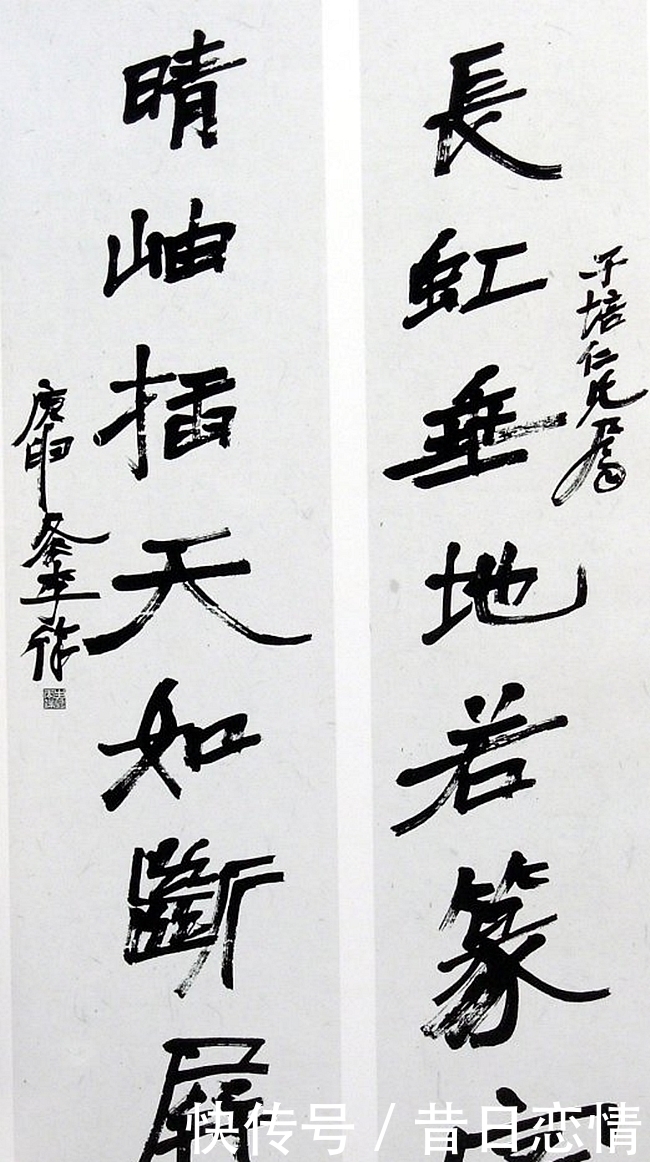 子培仁兄
長虹垂地若篆
晴岫插天如斷屏
庚申
快传号 / 昔日恋情